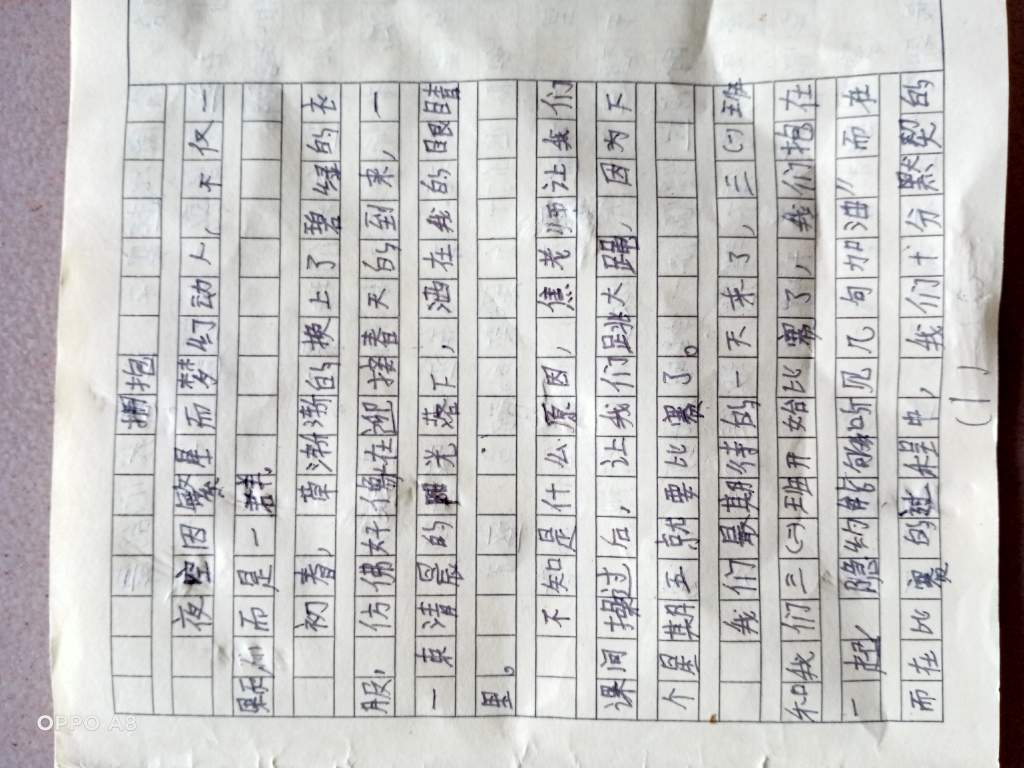 拥抱
夜空因繁星而梦幻动人,不仅一
颗而是一群。
初春,草渐渐的换上了碧绿的衣
服,仿佛好像在迎接春天的到来,一
一束清晨的阳光落下,洒在我的眼睛
里。
不知是什么原因,焦老师让我们
课间操过后,让我们跳大绳,因为下
个星期五就要比赛了。
我们最期待的一天来了,三(一)班
和我们三(二)班开始比赛了,我们抱在
一起,隐约能够听见几句“加油”而在
而在比赛的过程中,我们十分默契的
(1)
OPPO A8